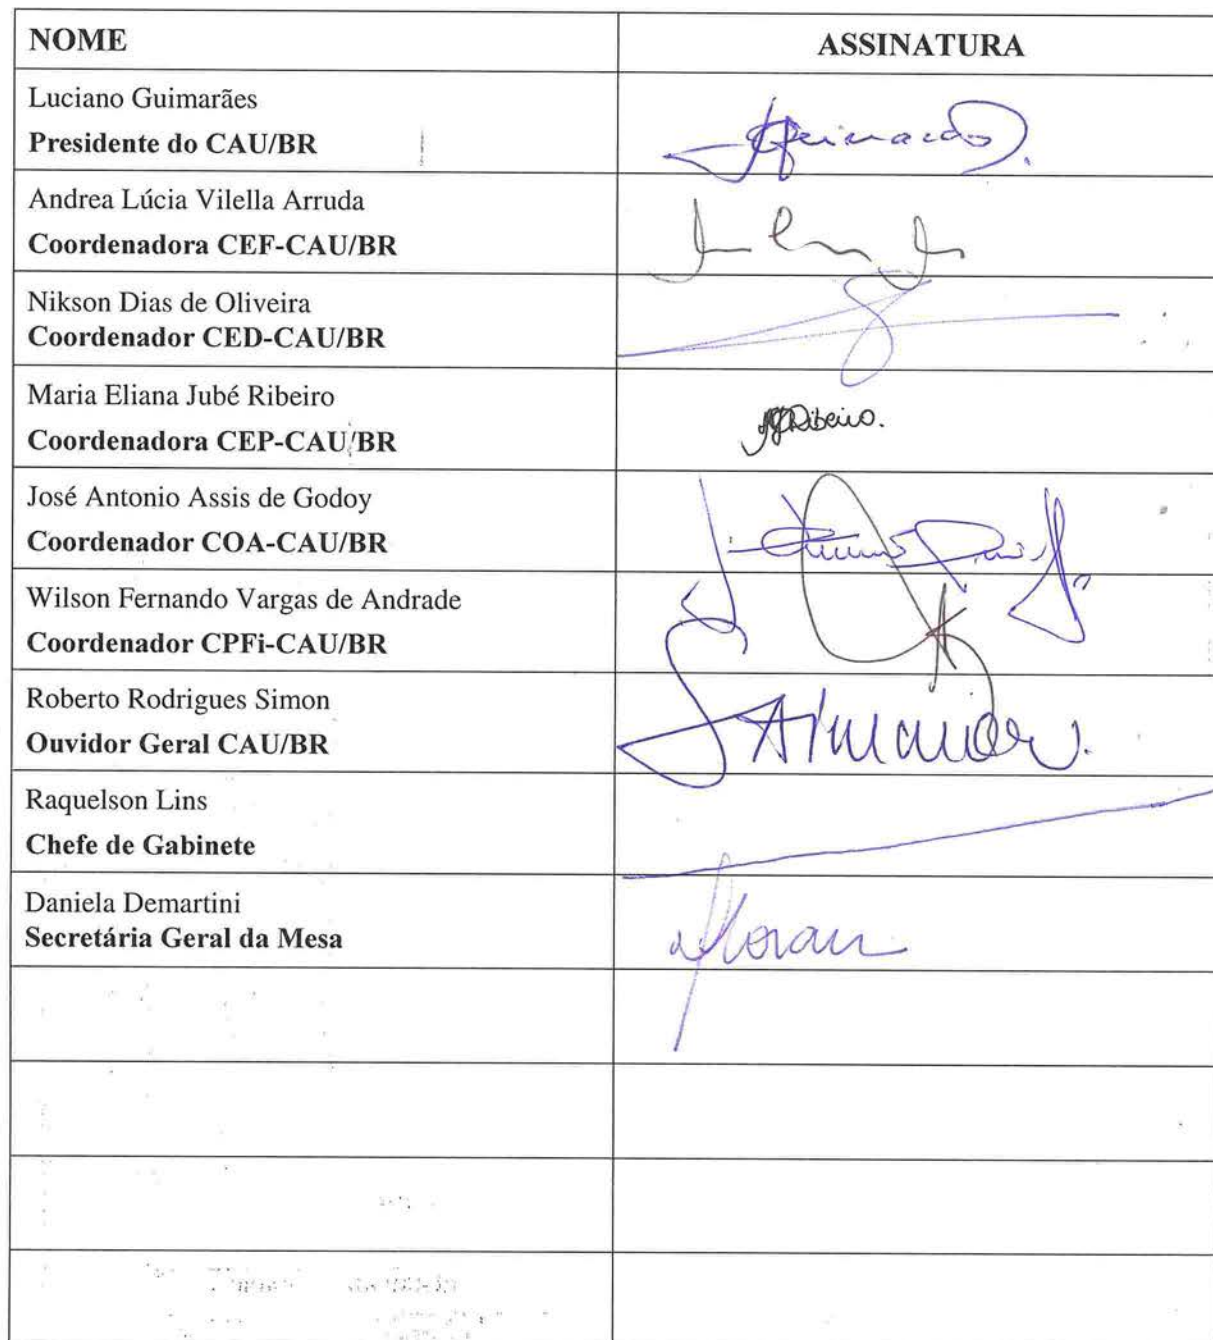 NOME
ASSINATURA
Luciano Guimarães
Presidente do CAU/BR
Andrea Lúcia Vilella Arruda
Coordenadora CEF-CAU/BR
Nikson Dias de Oliveira
Coordenador CED-CAU/BR
Maria Eliana Jubé Ribeiro
Coordenadora CEP-CAU/BR
Ribeiro.
José Antonio Assis de Godoy
Coordenador COA-CAU/BR
Wilson Fernando Vargas de Andrade
Coordenador CPFi-CAU/BR
Roberto Rodrigues Simon
Ouvidor Geral CAU/BR
Raquelson Lins
Chefe de Gabinete
Daniela Demartini
Secretária Geral da Mesa